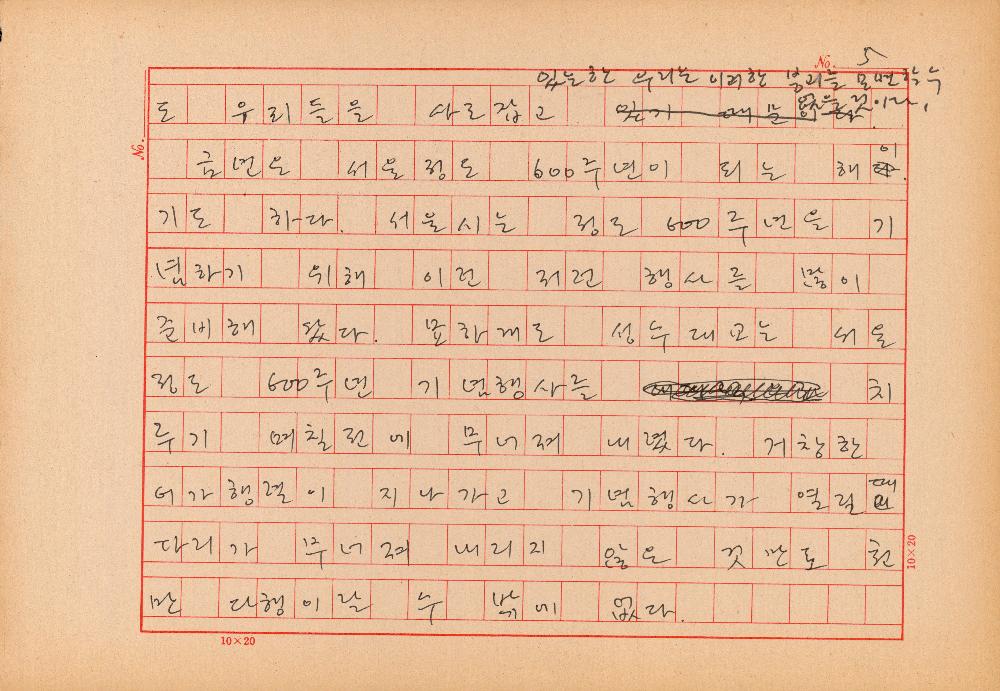 No. 5
있는한 우리는 이러한 붕괴를 모면할 수
없을 것이다.
도 우리들을 사로잡고 있기 때문
No.
금년은 서울정도 600주년이 되는 해이
기도 하다. 서울시는 정도 600주년을 기
념하기 위해 이런 저런 행사를 많이
준비해 왔다. 묘하게도 성수대교는 서울
정도 600주년 기념행사를 치
루기 며칠전에 무너져 내렸다. 거창한
어가행렬이 지나가고 기념행사가 열릴때
다리가 무너져 내리지 않은 것만도 천
만 다행이랄 수 밖에 없다.
10×20
10×20